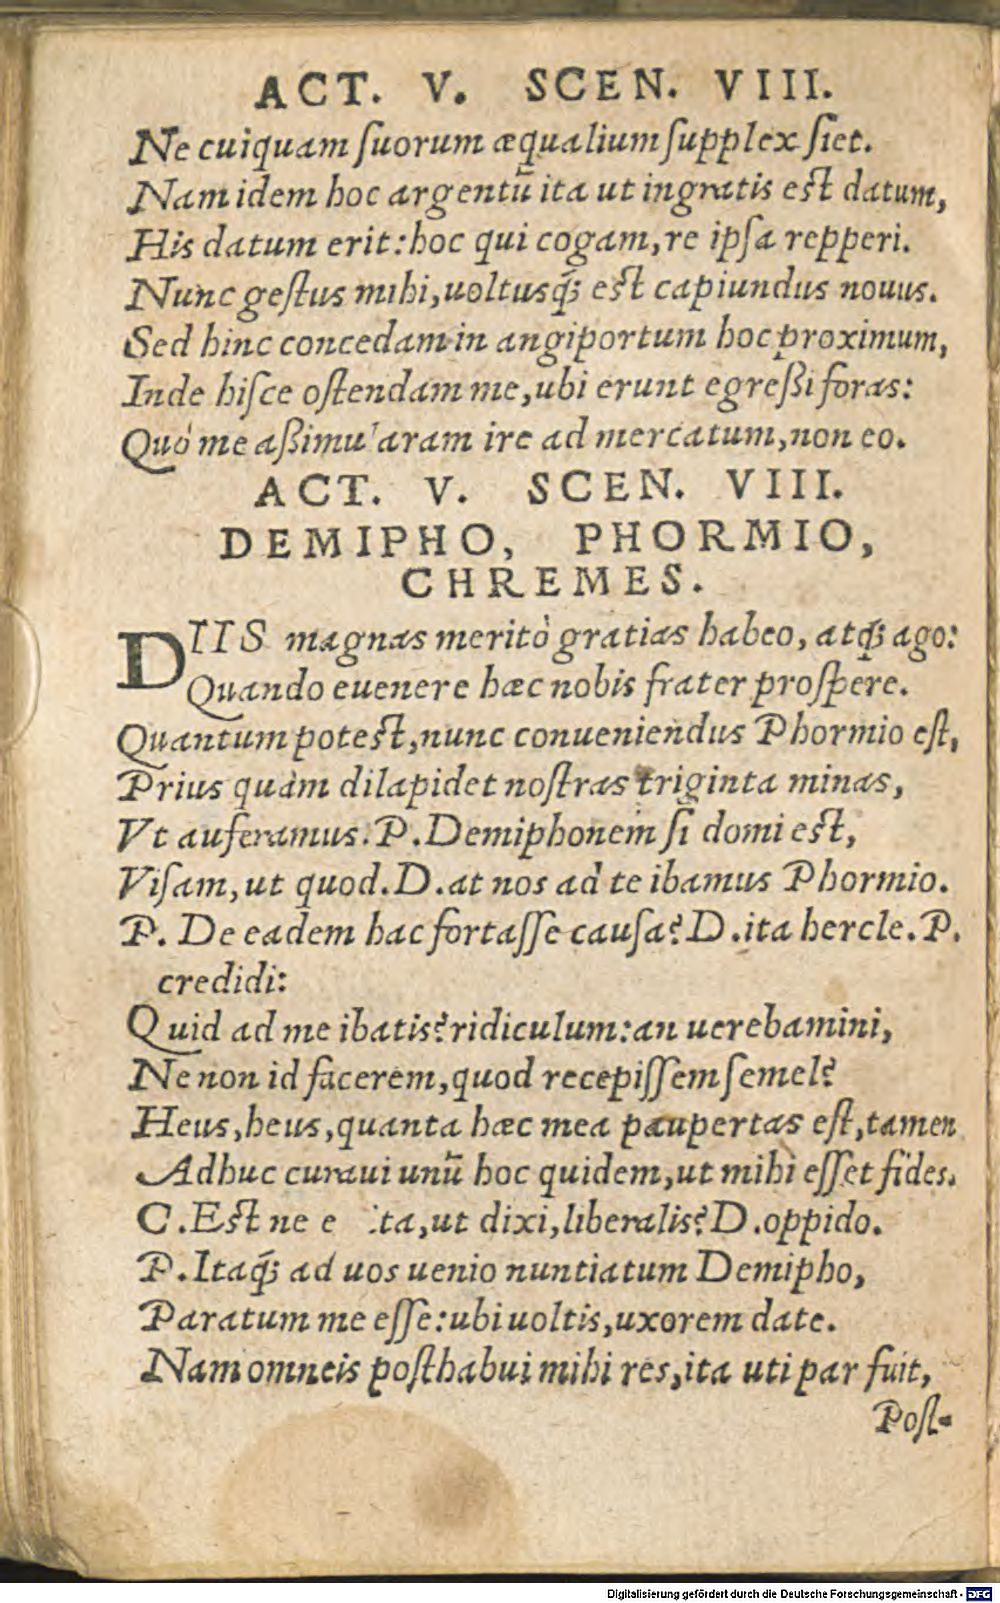 ACT. V. SCEN. VIII.
Ne cuiquam ſuorum æqualium ſupplex ſiet.
Nam idem hoc argentũ ita ut ingratis eſt datum,
His datum erit: hoc qui cogam, re ipſa repperi.
Nunc geſtus mihi, uoltusq́; eſt capiundus nouus.
Sed hinc concedam in angiportum hoc proximum,
Inde hiſce oſtendam me, ubi erunt egreßi foras:
Quò me aßimu'aram ire ad mercatum, non eo.
ACT. V. SCEN. VIII.
DEMIPHO, PHORMIO,
CHREMES.
DIIS magnas meritò gratias habeo, atq́; ago:
Quando euenere hæc nobis frater proſpere.
Quantum poteſt, nunc conueniendus Phormio eſt,
Prius quàm dilapidet noſtras triginta minas,
Vt auferamus. P. Demiphonem ſi domi eſt,
Viſam, ut quod. D. at nos ad te ibamus Phormio.
P. De eadem hac fortaſſe cauſa? D. ita hercle. P.
credidi:
Quid ad me ibatis? ridiculum: an uerebamini,
Ne non id facerem, quod recepiſſem ſemel?
Heus, heus, quanta hæc mea paupertas eſt, tamen
Adhuc curaui unũ hoc quidem, ut mihi eſſet fides.
C. Eſt ne e ita, ut dixi, liberalis? D. oppido.
P. Itaq́; ad uos uenio nuntiatum Demipho,
Paratum me eſſe: ubi uoltis, uxorem date.
Nam omneis poſthabui mihi res, ita uti par fuit,
Poſt-
Digitalisierung gefördert durch die Deutsche Forschungsgemeinschaft - DFG